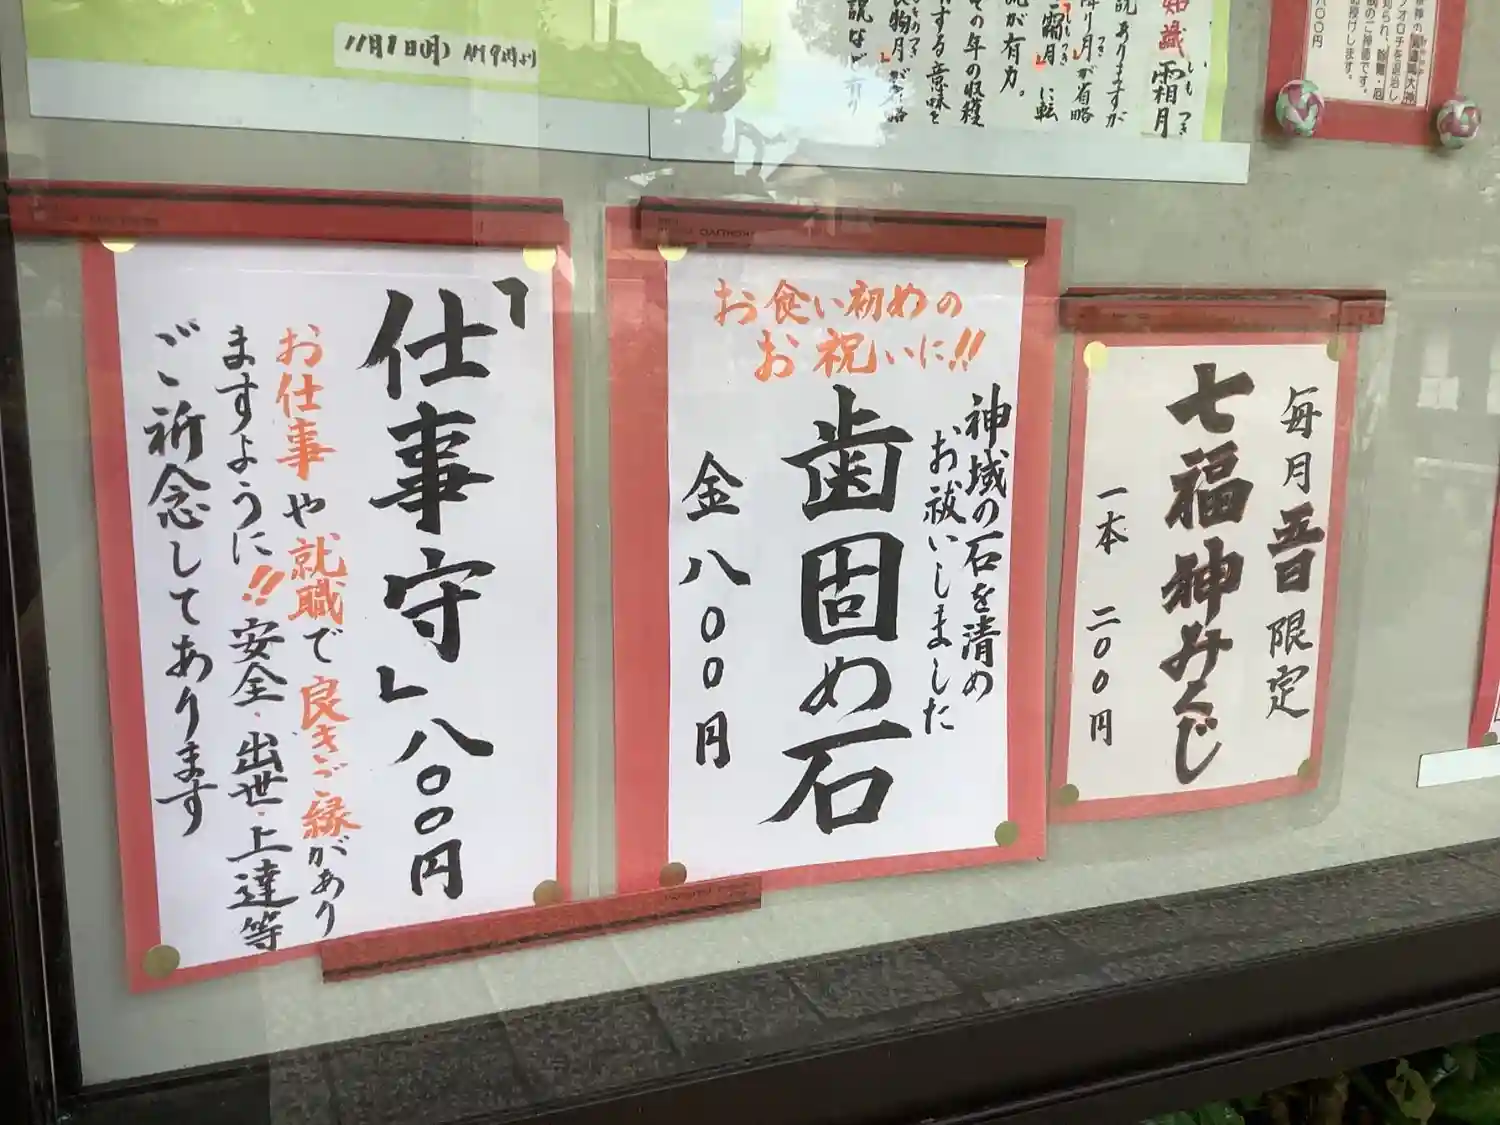 11月1日(月) AM9時より
知識 霜月
説ありますが
降り月」が省略
「霜月」に転
その年の収穫
する意味を
説が有力。
説など有り
八〇〇円
毎月五日限定
七福神みくじ
一本 二〇〇円
お食い初めの
お祝いに!!
神域の石を清め
お祓いしました
歯固め石
金八〇〇円
「仕事守」八〇〇円
お仕事や就職で良きご縁があり
ますように!!安全・出世・上達等
ご祈念してあります